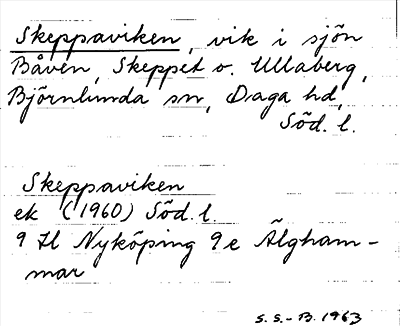 Skeppaviken, vik i sjön
Båven, Skeppet o. Ullaberg,
Björnlunda sn, Daga hd,
Söd. l.
Skeppaviken
ek (1960) Söd. l.
9 H Nyköping 9e Älgham-
mar
S. S.-B. 1963